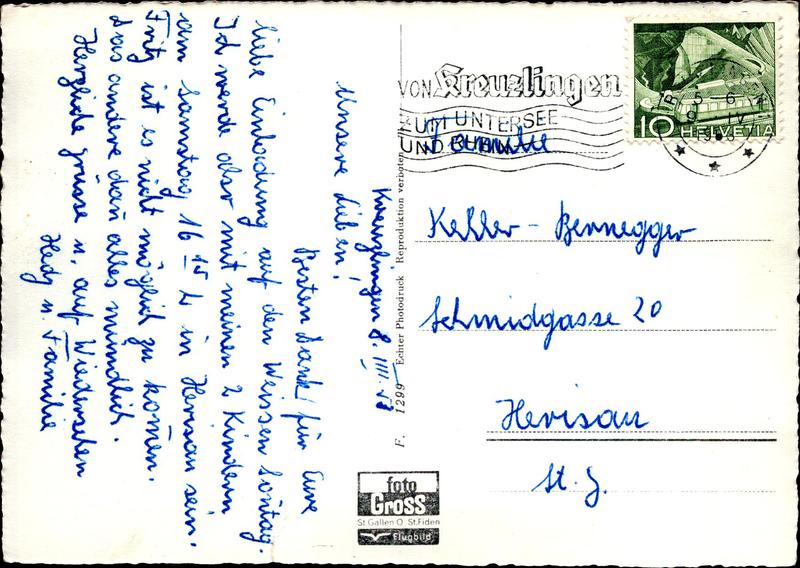 Kreuzlingen 8. IIII. 53
Unsere Lieben!
Besten Dank für Eure
liebe Einladung auf den Weissen Sontag.
Ich werde also mit meinen 2 Kindern
am Samstag 16 15 h in Herisau sein.
Fritz ist es nicht möglich zu komen.
Das andere dan alles mündlich.
Herzliche Grüsse u. auf Wiedersehen
Hedy u. Familie
F. 1299 Echter Photodruck Reproduktion verboten
foto
Gross
St. Gallen O St. Fiden
Flugbild
VON Kreuzlingen
ZUM UNTERSEE
UND
10 HELVETIA
Familie
Keller - Bernegger
Schmidgasse 20
Herisau
St. G.